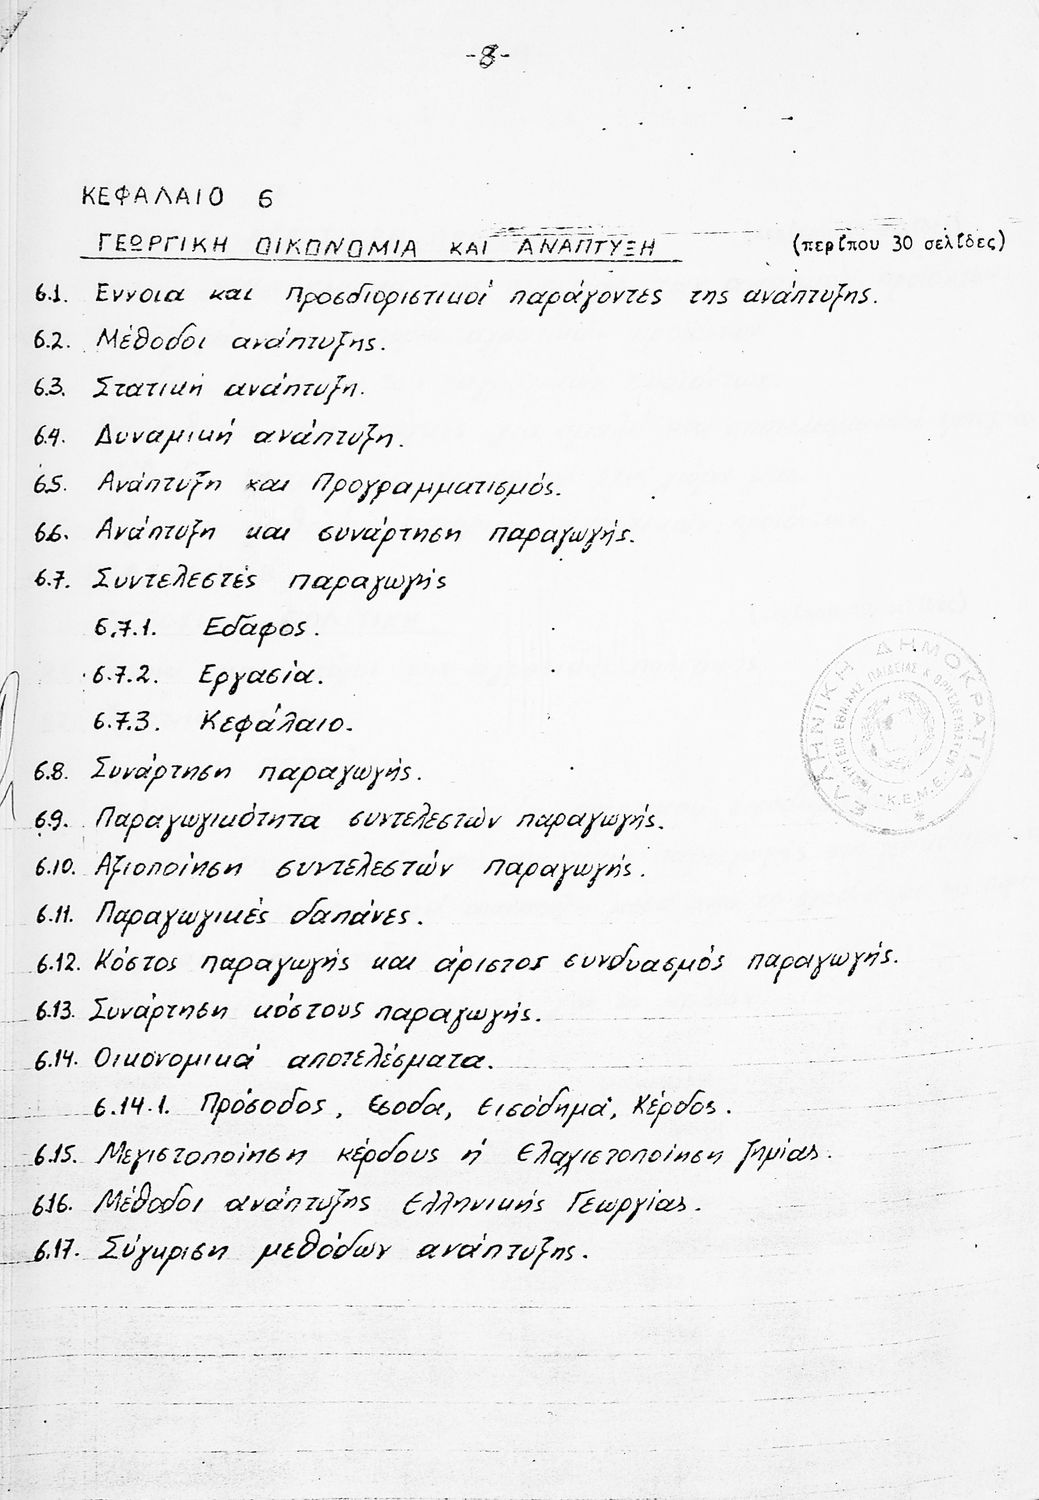 -8-
ΚΕΦΑΛΑΙΟ 6
ΓΕΩΡΓΙΚΗ ΟΙΚΟΝΟΜΙΑ ΚΑΙ ΑΝΑΠΤΥΞΗ (περίπου 30 σελίδες)
6.1. Εννοια και Προσδιοριστικοί παράγοντες της ανάπτυξης.
6.2. Μέθοδοι ανάπτυξης.
6.3. Στατική ανάπτυξη.
6.4. Δυναμική ανάπτυξη.
6.5. Ανάπτυξη και Προγραμματισμός.
6.6. Ανάπτυξη και συνάρτηση παραγωγής.
6.7. Συντελεστές παραγωγής
6.7.1. Εδαφος.
6.7.2. Εργασία.
6.7.3. Κεφάλαιο.
6.8. Συνάρτηση παραγωγής.
6.9. Παραγωγικότητα συντελεστών παραγωγής.
6.10. Αξιοποίηση συντελεστών παραγωγής.
6.11. Παραγωγικές δαπάνες.
6.12. Κόστος παραγωγής και άριστος συνδυασμός παραγωγής.
6.13. Συνάρτηση κόστους παραγωγής.
6.14. Οικονομικά αποτελέσματα.
6.14.1. Πρόσοδος, Εσοδα, Εισόδημα, Κέρδος.
6.15. Μεγιστοποίηση κέρδους ή Ελαχιστοποίηση ζημίας.
6.16. Μέθοδοι ανάπτυξης Ελληνικής Γεωργίας.
6.17. Σύγκριση μεθόδων ανάπτυξης.
ΕΛΛΗΝΙΚΗ ΔΗΜΟΚΡΑΤΙΑ
Κ.Ε.Μ.Ε.